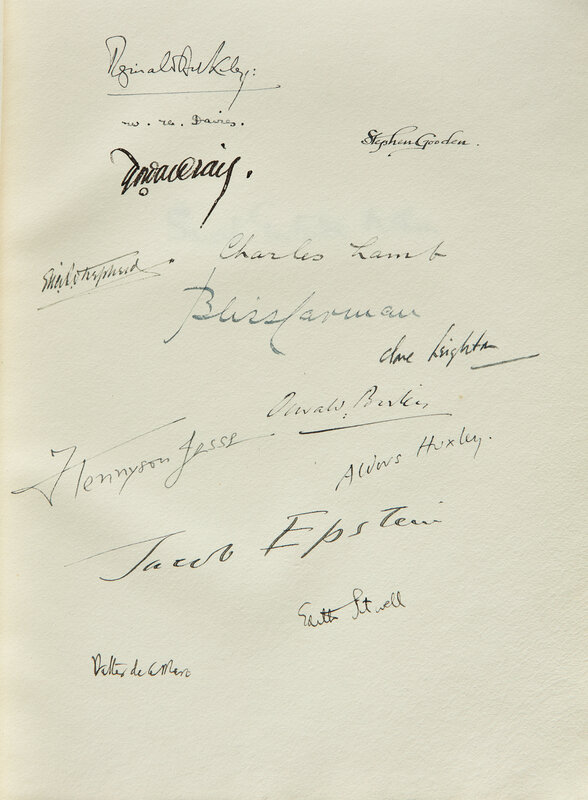 Reginald Arkell.
W. H. Davies.
Stephen Gooden.
Charles Lamb
Bliss Carman
Clare Leighton
Oswald Birley
F Tennyson Jesse
Aldous Huxley.
Jacob Epstein
Edith Sitwell
Walter de la Mare